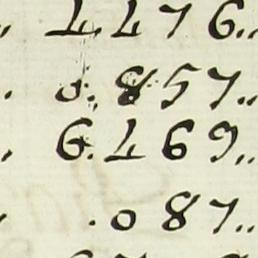 4.476..
0.857..
6.469..
.087..